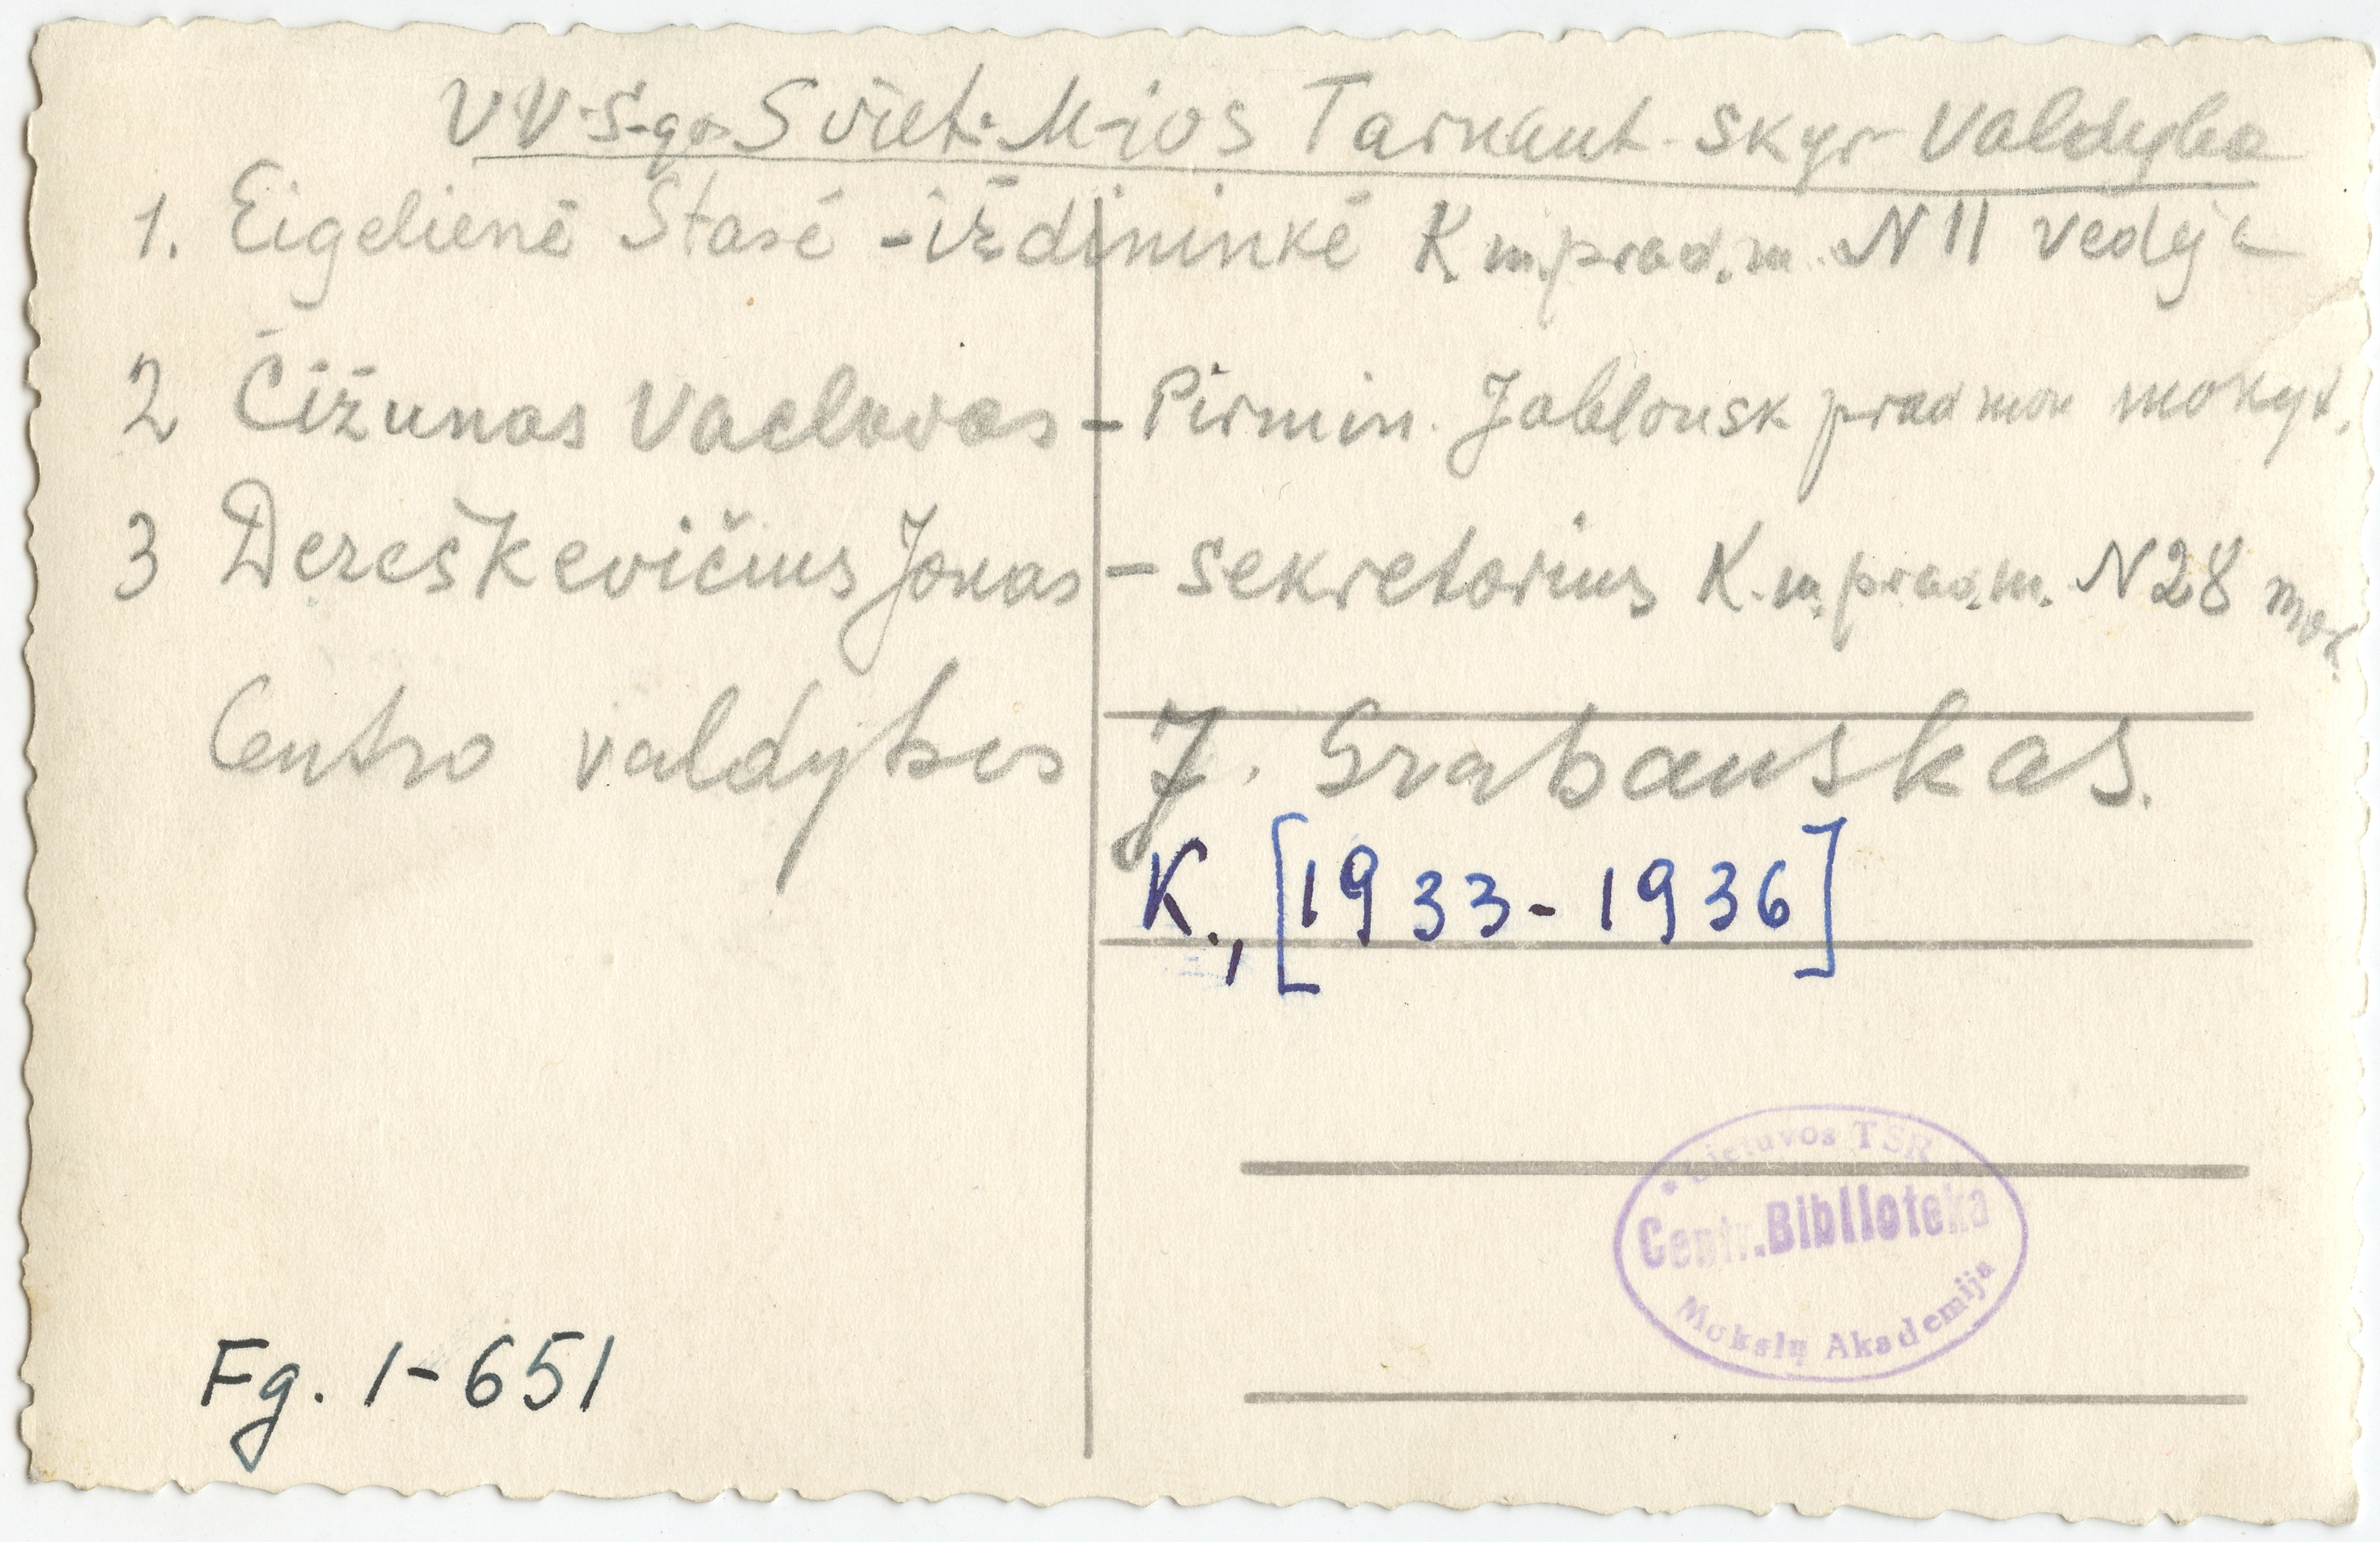 VV S-gos Sviet. M-jos Tarnaut. skyr valdyba
1. Eigelienė Stasė - iždininkė K. m. prad. m. N 11 vedėja
2 Čižunas Vaclovas - Pirmin. Jablonsk prad mok mokyt.
3 Dereškevičius Jonas - sekretorius K. m. prad. m. N 28 mok.
Centro valdybos J. Grabauskas.
K., [1933-1936]
Lietuvos TSR
Centr. Biblioteka
Mokslų Akademija
Fg. 1-651